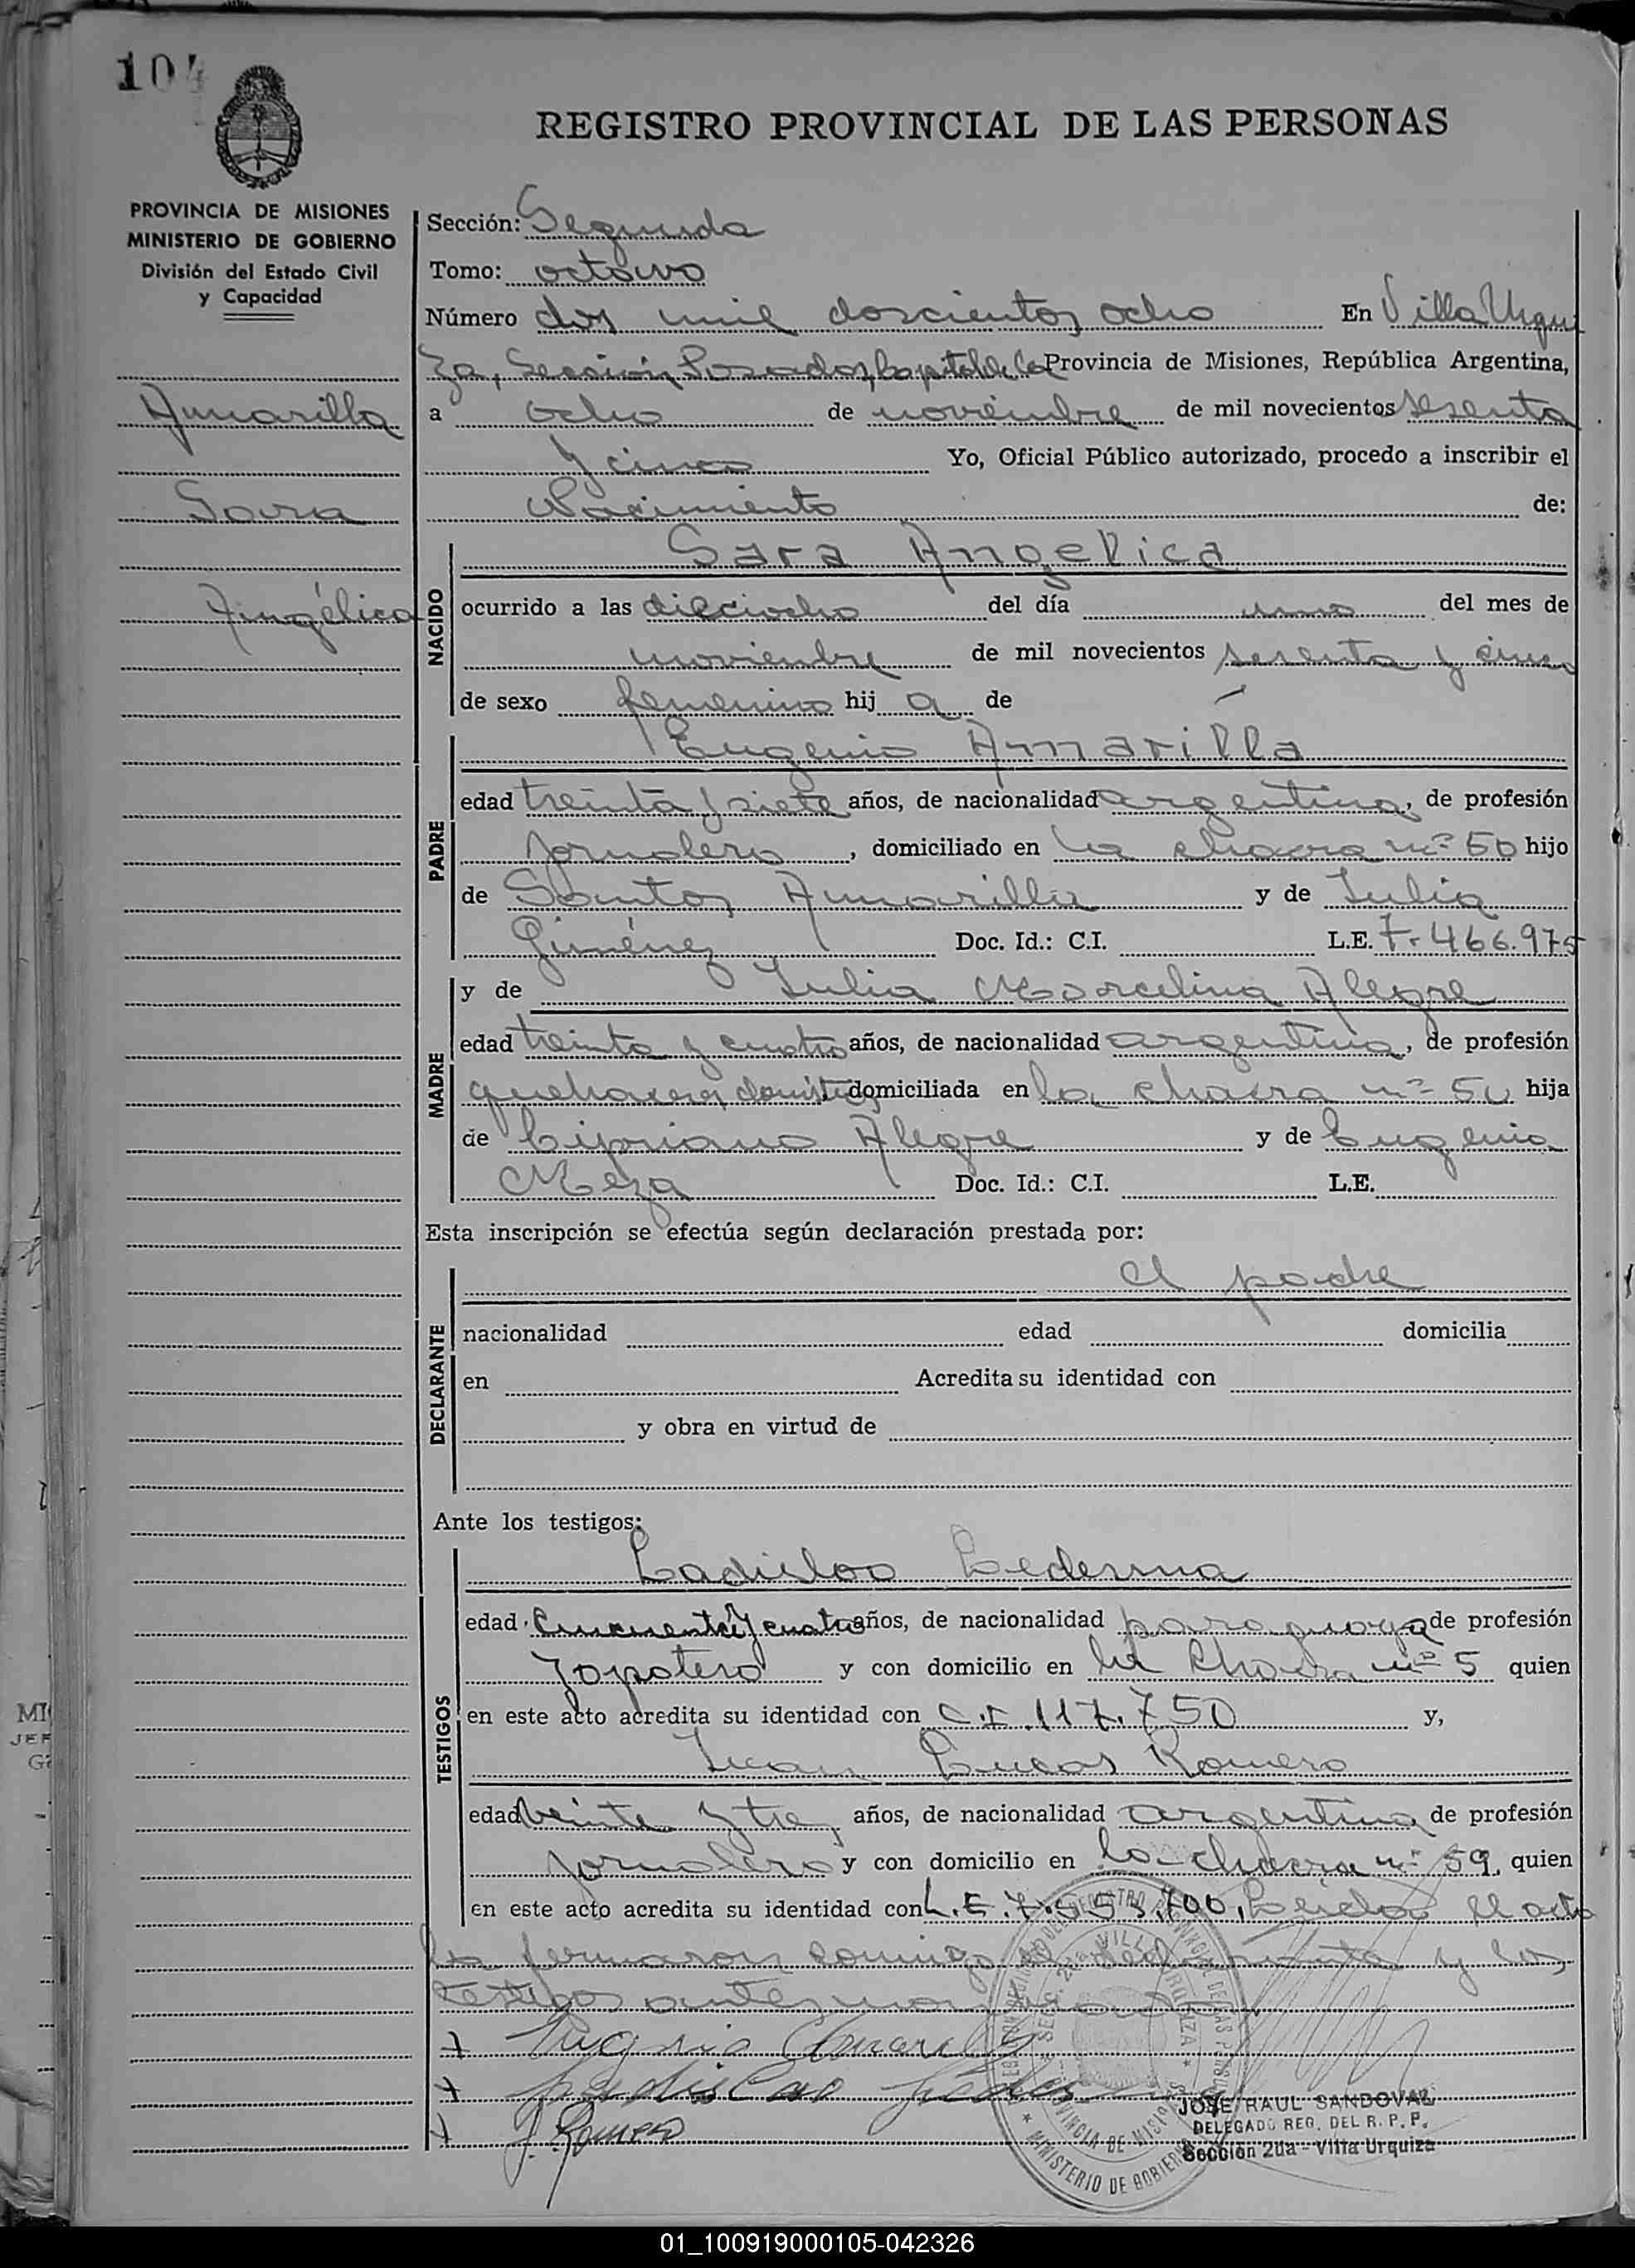 104
REGISTRO PROVINCIAL DE LAS PERSONAS
PROVINCIA DE MISIONES
MINISTERIO DE GOBIERNO
División del Estado Civil
y Capacidad
Amarilla
Sara
Angélica
Sección: Segunda
Tomo: octavo
Número dos mil doscientos ocho En Villa Urqui
za, Sección Posadas, Capital de la Provincia de Misiones, República Argentina,
a ocho de noviembre de mil novecientos sesenta
y cinco Yo, Oficial Público autorizado, procedo a inscribir el
Nacimiento de:
NACIDO
Sara Angelica
ocurrido a las dieciocho del día uno del mes de
noviembre de mil novecientos sesenta y cinco
de sexo femenino hij a de
PADRE
Eugenio Amarilla
edad treinta y siete años, de nacionalidad argentina, de profesión
jornalero, domiciliado en la chacra nº 50 hijo
de Santos Amarilla y de Julia
Giménez Doc. Id.: C.I. L.E. 7.466.975
MADRE
y de Julia Marcelina Alegre
edad treinta y cuatro años, de nacionalidad argentina, de profesión
quehaceres domésticos domiciliada en la chacra nº 50 hija
de Cipriano Alegre y de Eugenia
Meza Doc. Id.: C.I. L.E.
Esta inscripción se efectúa según declaración prestada por:
DECLARANTE
el padre
nacionalidad edad domicilia
en Acredita su identidad con
y obra en virtud de
Ante los testigos:
TESTIGOS
Ladislao Ledesma
edad cincuenta y cuatro años, de nacionalidad paraguaya de profesión
zapatero y con domicilio en la chacra nº 5 quien
en este acto acredita su identidad con C.I. 117.750 y,
Juan Lucas Romero
edad veinte y tres años, de nacionalidad argentina de profesión
jornalero y con domicilio en la chacra nº 59, quien
en este acto acredita su identidad con L.E. 7.553.700, Leida el acta
la firmaron conmigo el declarante y los
testigos antes
+ Eugenio Amarilla
+ Ladislao
+ J. Romero
JOSE RAUL SANDOVAL
DELEGADO REG. DEL R. P. P.
Sección 2da - Villa Urquiza
MINISTERIO DE GOBIERNO
PROVINCIA DE MISIONES
01_100919000105-042326